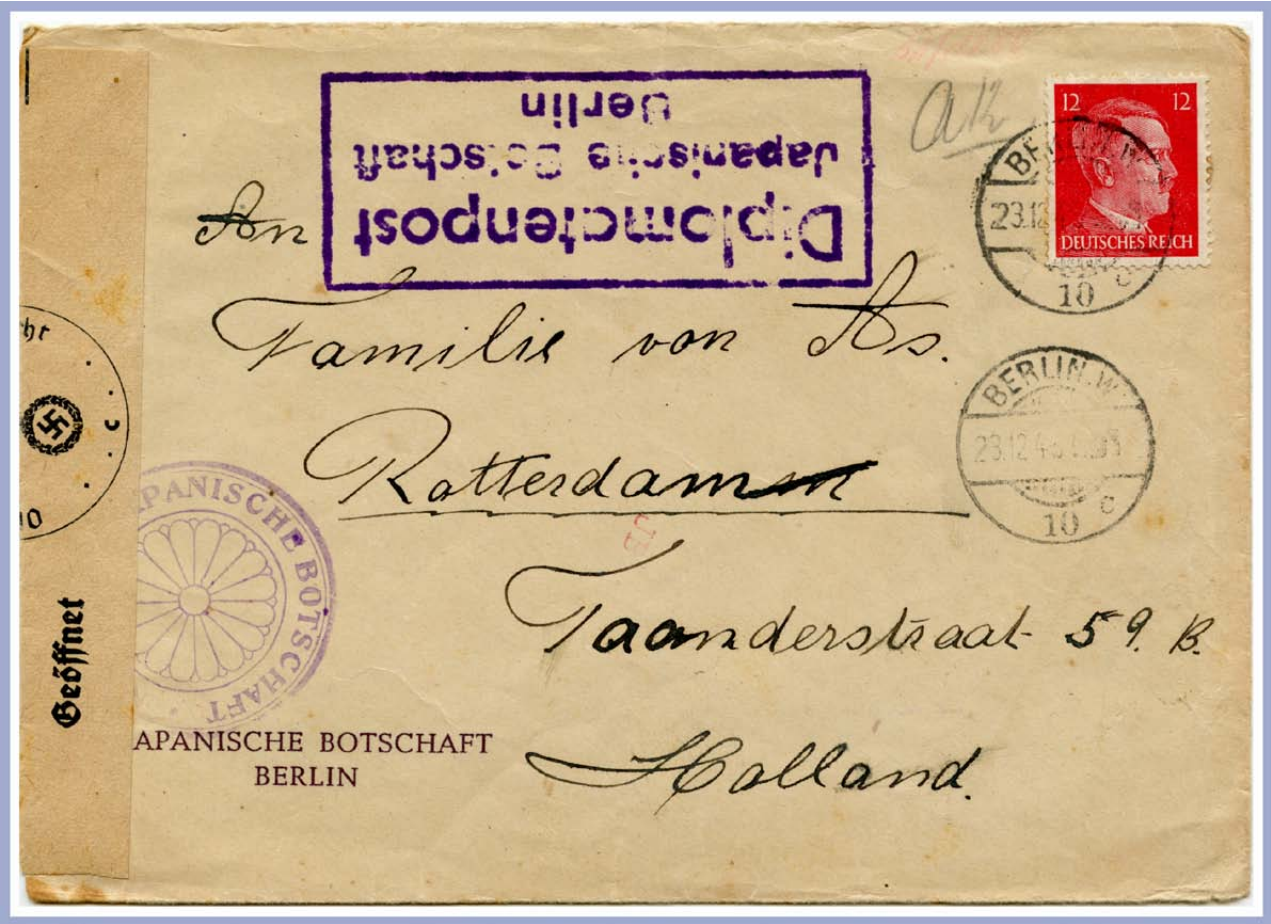 Diplomatenpost
Japanische Botschaft
Berlin
12 12
DEUTSCHES REICH
BERLIN W
23.12
10 c
BERLIN W
10 c
An
Familie von As.
Rotterdam
Taanderstraat 59. B.
Holland.
Geöffnet
APANISCHE BOTSCHAFT
APANISCHE BOTSCHAFT
BERLIN